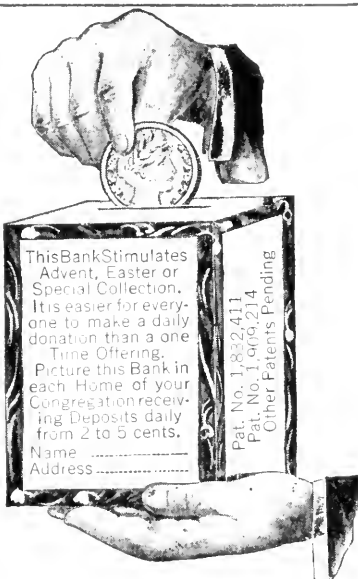 ThisBankStimulates
Advent, Easter or
Special Collection.
It is easier for every-
one to make a daily
donation than a one
Time Offering.
Picture this Bank in
each Home of your
Congregation receiv-
ing Deposits daily
from 2 to 5 cents.
Name
Address
Pat. No. 1,832,411
Pat. No. 1,909,214
Other Patents Pending